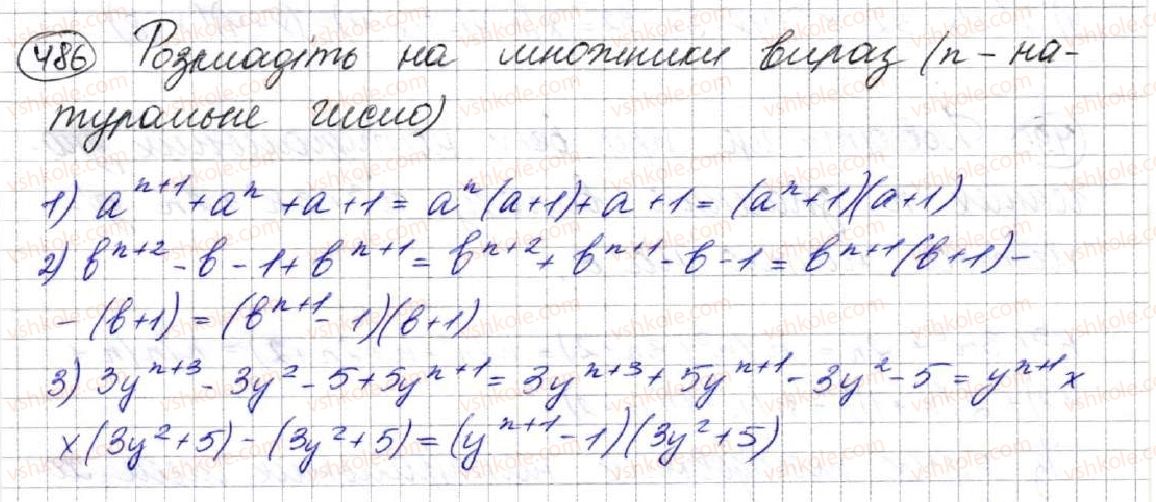 486 Розкладіть на множники вираз (n - на-
туральне число)
1) a^{n+1} + a^n + a + 1 = a^n (a+1) + a + 1 = (a^n + 1)(a+1)
2) b^{n+2} - b - 1 + b^{n+1} = b^{n+2} + b^{n+1} - b - 1 = b^{n+1}(b+1) -
- (b+1) = (b^{n+1} - 1)(b+1)
3) 3y^{n+3} - 3y^2 - 5 + 5y^{n+1} = 3y^{n+3} + 5y^{n+1} - 3y^2 - 5 = y^{n+1} x
x (3y^2 + 5) - (3y^2 + 5) = (y^{n+1} - 1)(3y^2 + 5)